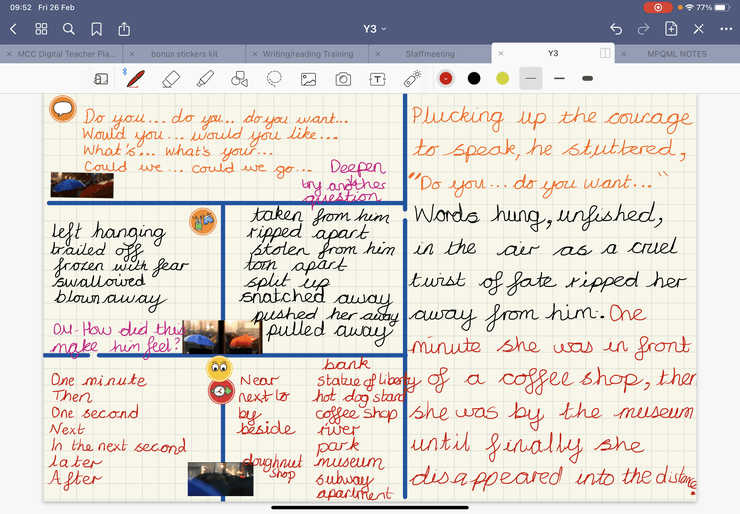 09:52 Fri 26 Feb
77%
Y3
MCC Digital Teacher Pla...
bonus stickers kit
Writing/reading Training
Staffmeeting
Y3
MPQML NOTES
Do you... do you... do you want...
Would you... would you like...
What's... what's your...
Could we... could we go...
Deepen
try another
question
left hanging
trailed off
frozen with fear
swallowed
blown away
How did this
make him feel?
taken from him
ripped apart
stolen from him
torn apart
split up
snatched away
pushed her away
pulled away
One minute
Then
One second
Next
In the next second
later
After
Near
next to
by
beside
doughnut
shop
bank
statue of liberty
hot dog stand
coffee shop
river
park
museum
subway
apartment
Plucking up the courage
to speak, he stuttered,
"Do you... do you want..."
Words hung, unfished,
in the air as a cruel
twist of fate ripped her
away from him. One
minute she was in front
of a coffee shop, then
she was by the museum
until finally she
disappeared into the distance.